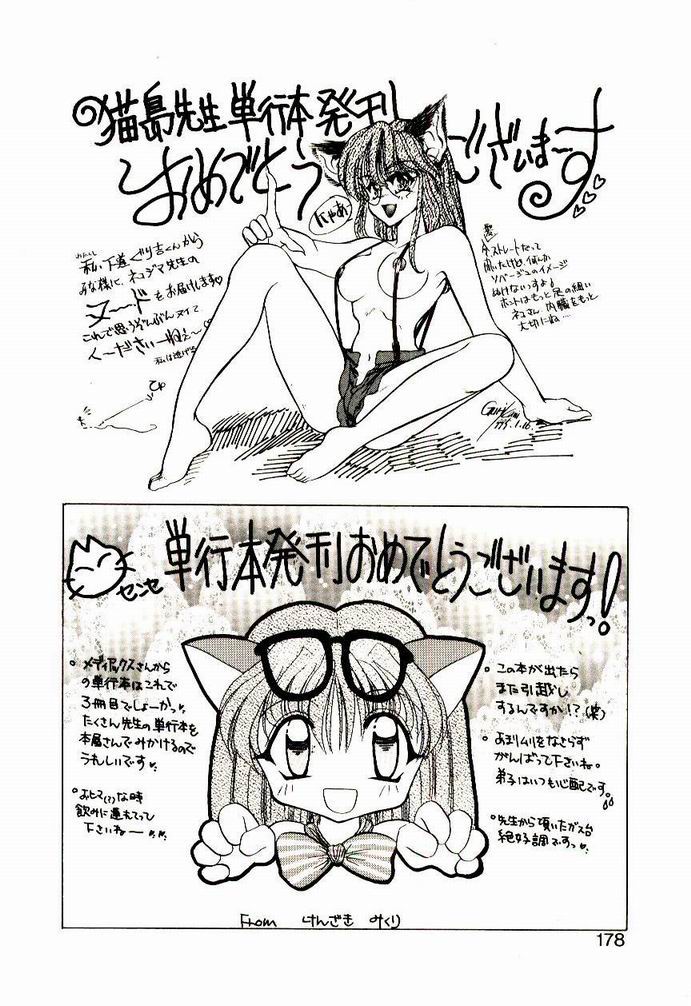 猫島先生単行本発刊
おめでとうございま〜す
にゃあ
私、下道ぐり吉くんから
みな様に、ネコジマ先生の
ヌードをお届けします
これで思うぞんぶんヌイて
く〜ださい〜ねぇ〜
ストレートだって
聞いたけど、何んか
ソバージュのイメージ
ぬけないっすよ!
ホントはもっと足の細い
ネコさん、内臓をもっと
大切にね…
センセ
単行本発刊おめでとうございますっ!
メディアックスさんから
の単行本はこれで
3冊目でしょーか。
たくさん先生の単行本を
本屋さんでみかけるので
うれしいです
おヒマ(?)な時
飲みに連れてって
下さいねー
この本が出たら
また引越し
するんですか!?(笑)
あまりムリをなさらず
がんばって下さいね。
弟子はいつも心配です。
先生から頂いたガス台
絶好調ですっ
From けんざき みくり
178